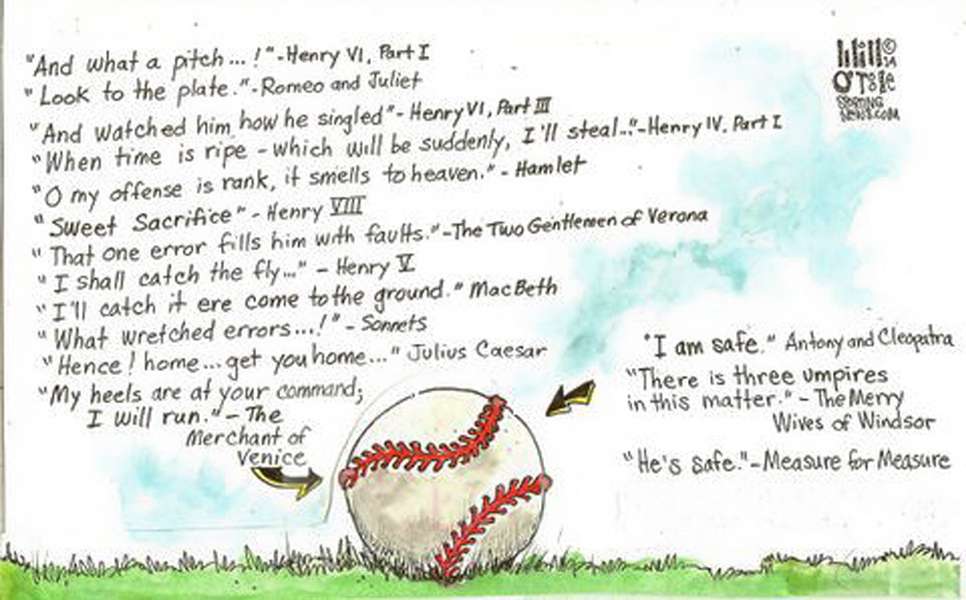 "And what a pitch...!" - Henry VI, Part I
"Look to the plate." - Romeo and Juliet
"And watched him how he singled" - Henry VI, Part III
"When time is ripe - which will be suddenly, I'll steal..." - Henry IV, Part I
"O my offense is rank, it smells to heaven." - Hamlet
"Sweet Sacrifice" - Henry VIII
"That one error fills him with faults." - The Two Gentlemen of Verona
"I shall catch the fly..." - Henry V
"I'll catch it ere come to the ground." MacBeth
"What wretched errors...!" - Sonnets
"Hence! home... get you home..." Julius Caesar
"My heels are at your command;
I will run." - The
Merchant of
Venice
Will ©
14
O'Tole
SPORTING
NEWS.COM
"I am safe." Antony and Cleopatra
"There is three umpires
in this matter." - The Merry
Wives of Windsor
"He's safe." - Measure for Measure